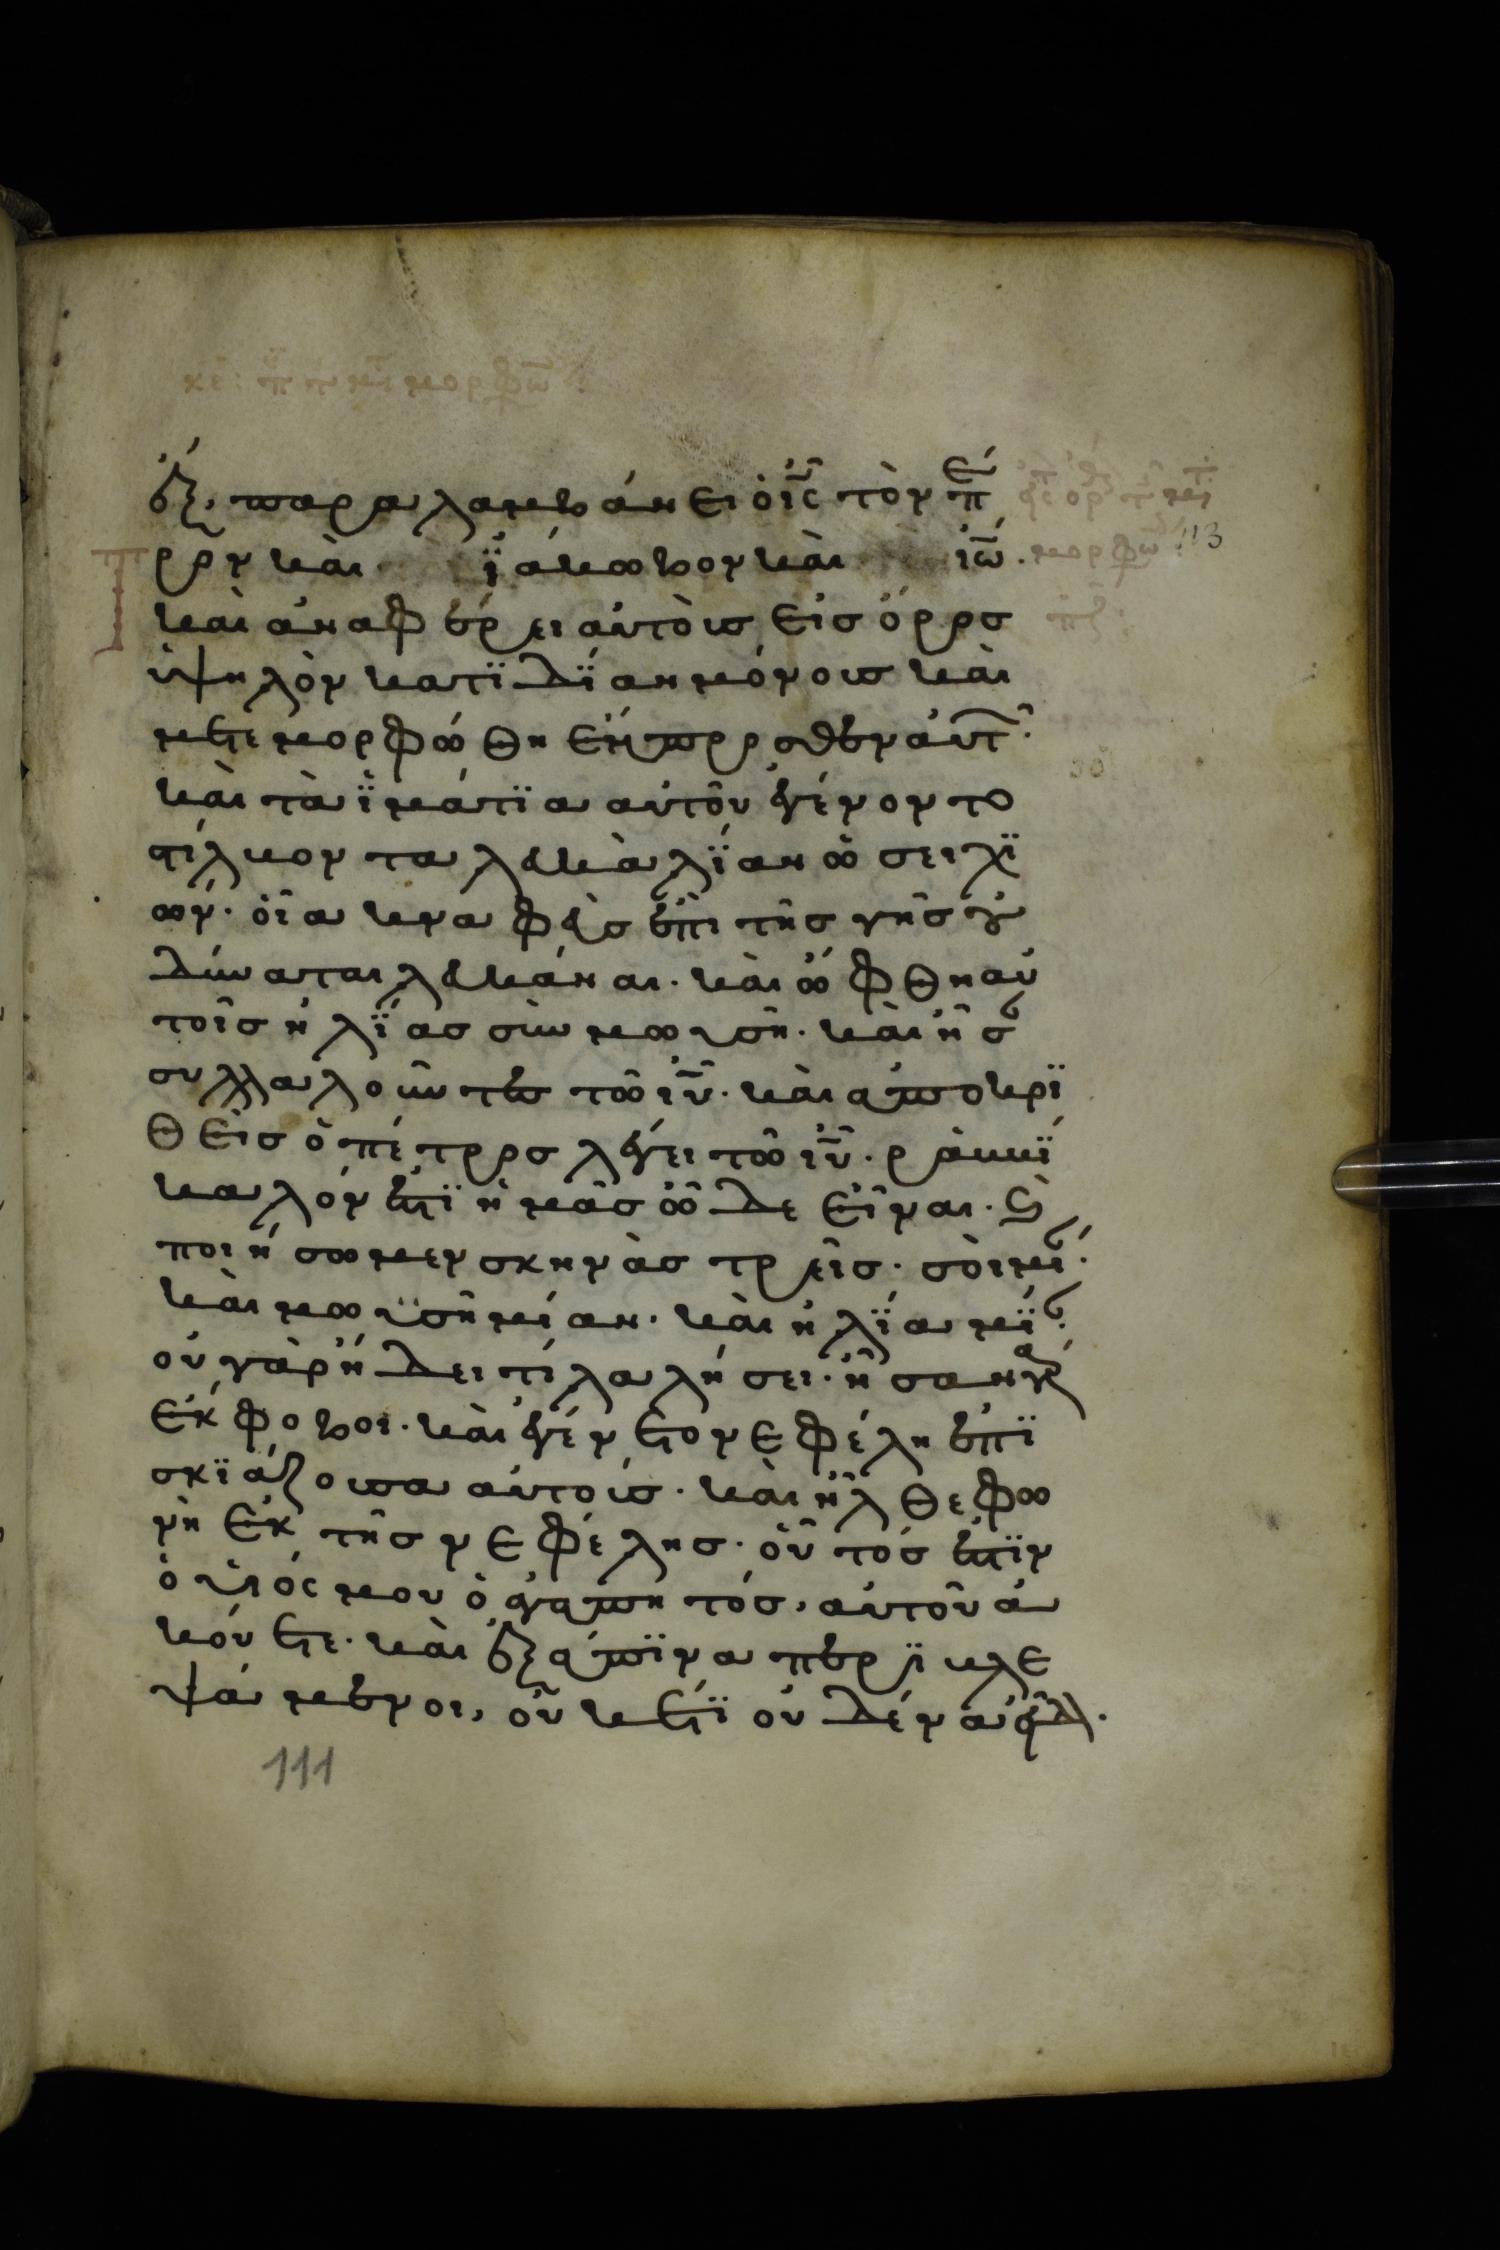 κε: π τ τῆς μορφώ
ἓξ, παραλαμβάνει ὁ ις τὸν πέ
τρον καὶ ϊάκωβον καὶ ιω.
καὶ ἀναφέρει αὐτοὺς εἰς ὄρος
ὑψηλὸν κατϊδΐαν μόνους καὶ
μετεμορφώθη ἔμπροσθεν αὐτ.
καὶ τὰ ϊμάτϊα αὐτοῦ ἐγένοντο
στίλβοντα λευκὰ λΐαν ὡσεὶ χϊ
ών. οἷα κναφεὺς ἐπὶ τῆς γῆς οὐ
δύναται λευκάναι. καὶ ὤφθη αὐ
τοῖς ἠλΐας σὺν μωυσῆ. καὶ ἦσ
συλλαλοῦντες τῶ ιυ. καὶ ἀποκρϊ
θεὶς ὁ πέτρος λέγει τῶ ιυ. ραββΐ
καλόν ἐστϊ ἡμᾶς ὧδε εἶναι. ϛ
ποιήσωμεν σκηνὰς τρεῖς. σοὶ μί.
καὶ μωϋσῆ μίαν. καὶ ἠλΐα μΐ.
οὐ γὰρ ἤδει τί λαλήσει. ἦσαν γὰρ
ἔκφοβοι. καὶ ἐγένετο νεφέλη ἐπϊ
σκϊάζουσα αὐτοίς. καὶ ἦλθε φω
νὴ ἐκ τῆς νεφέλης. οὗτός ἐστϊν
ὁ υἱός μου ὁ ἀγαπητός, αὐτοῦ ἀ
κούετε. καὶ ἐξάπϊνα περϊβλε
ψάμενοι, οὐκετϊ οὐδένα εἶδ.
113
111